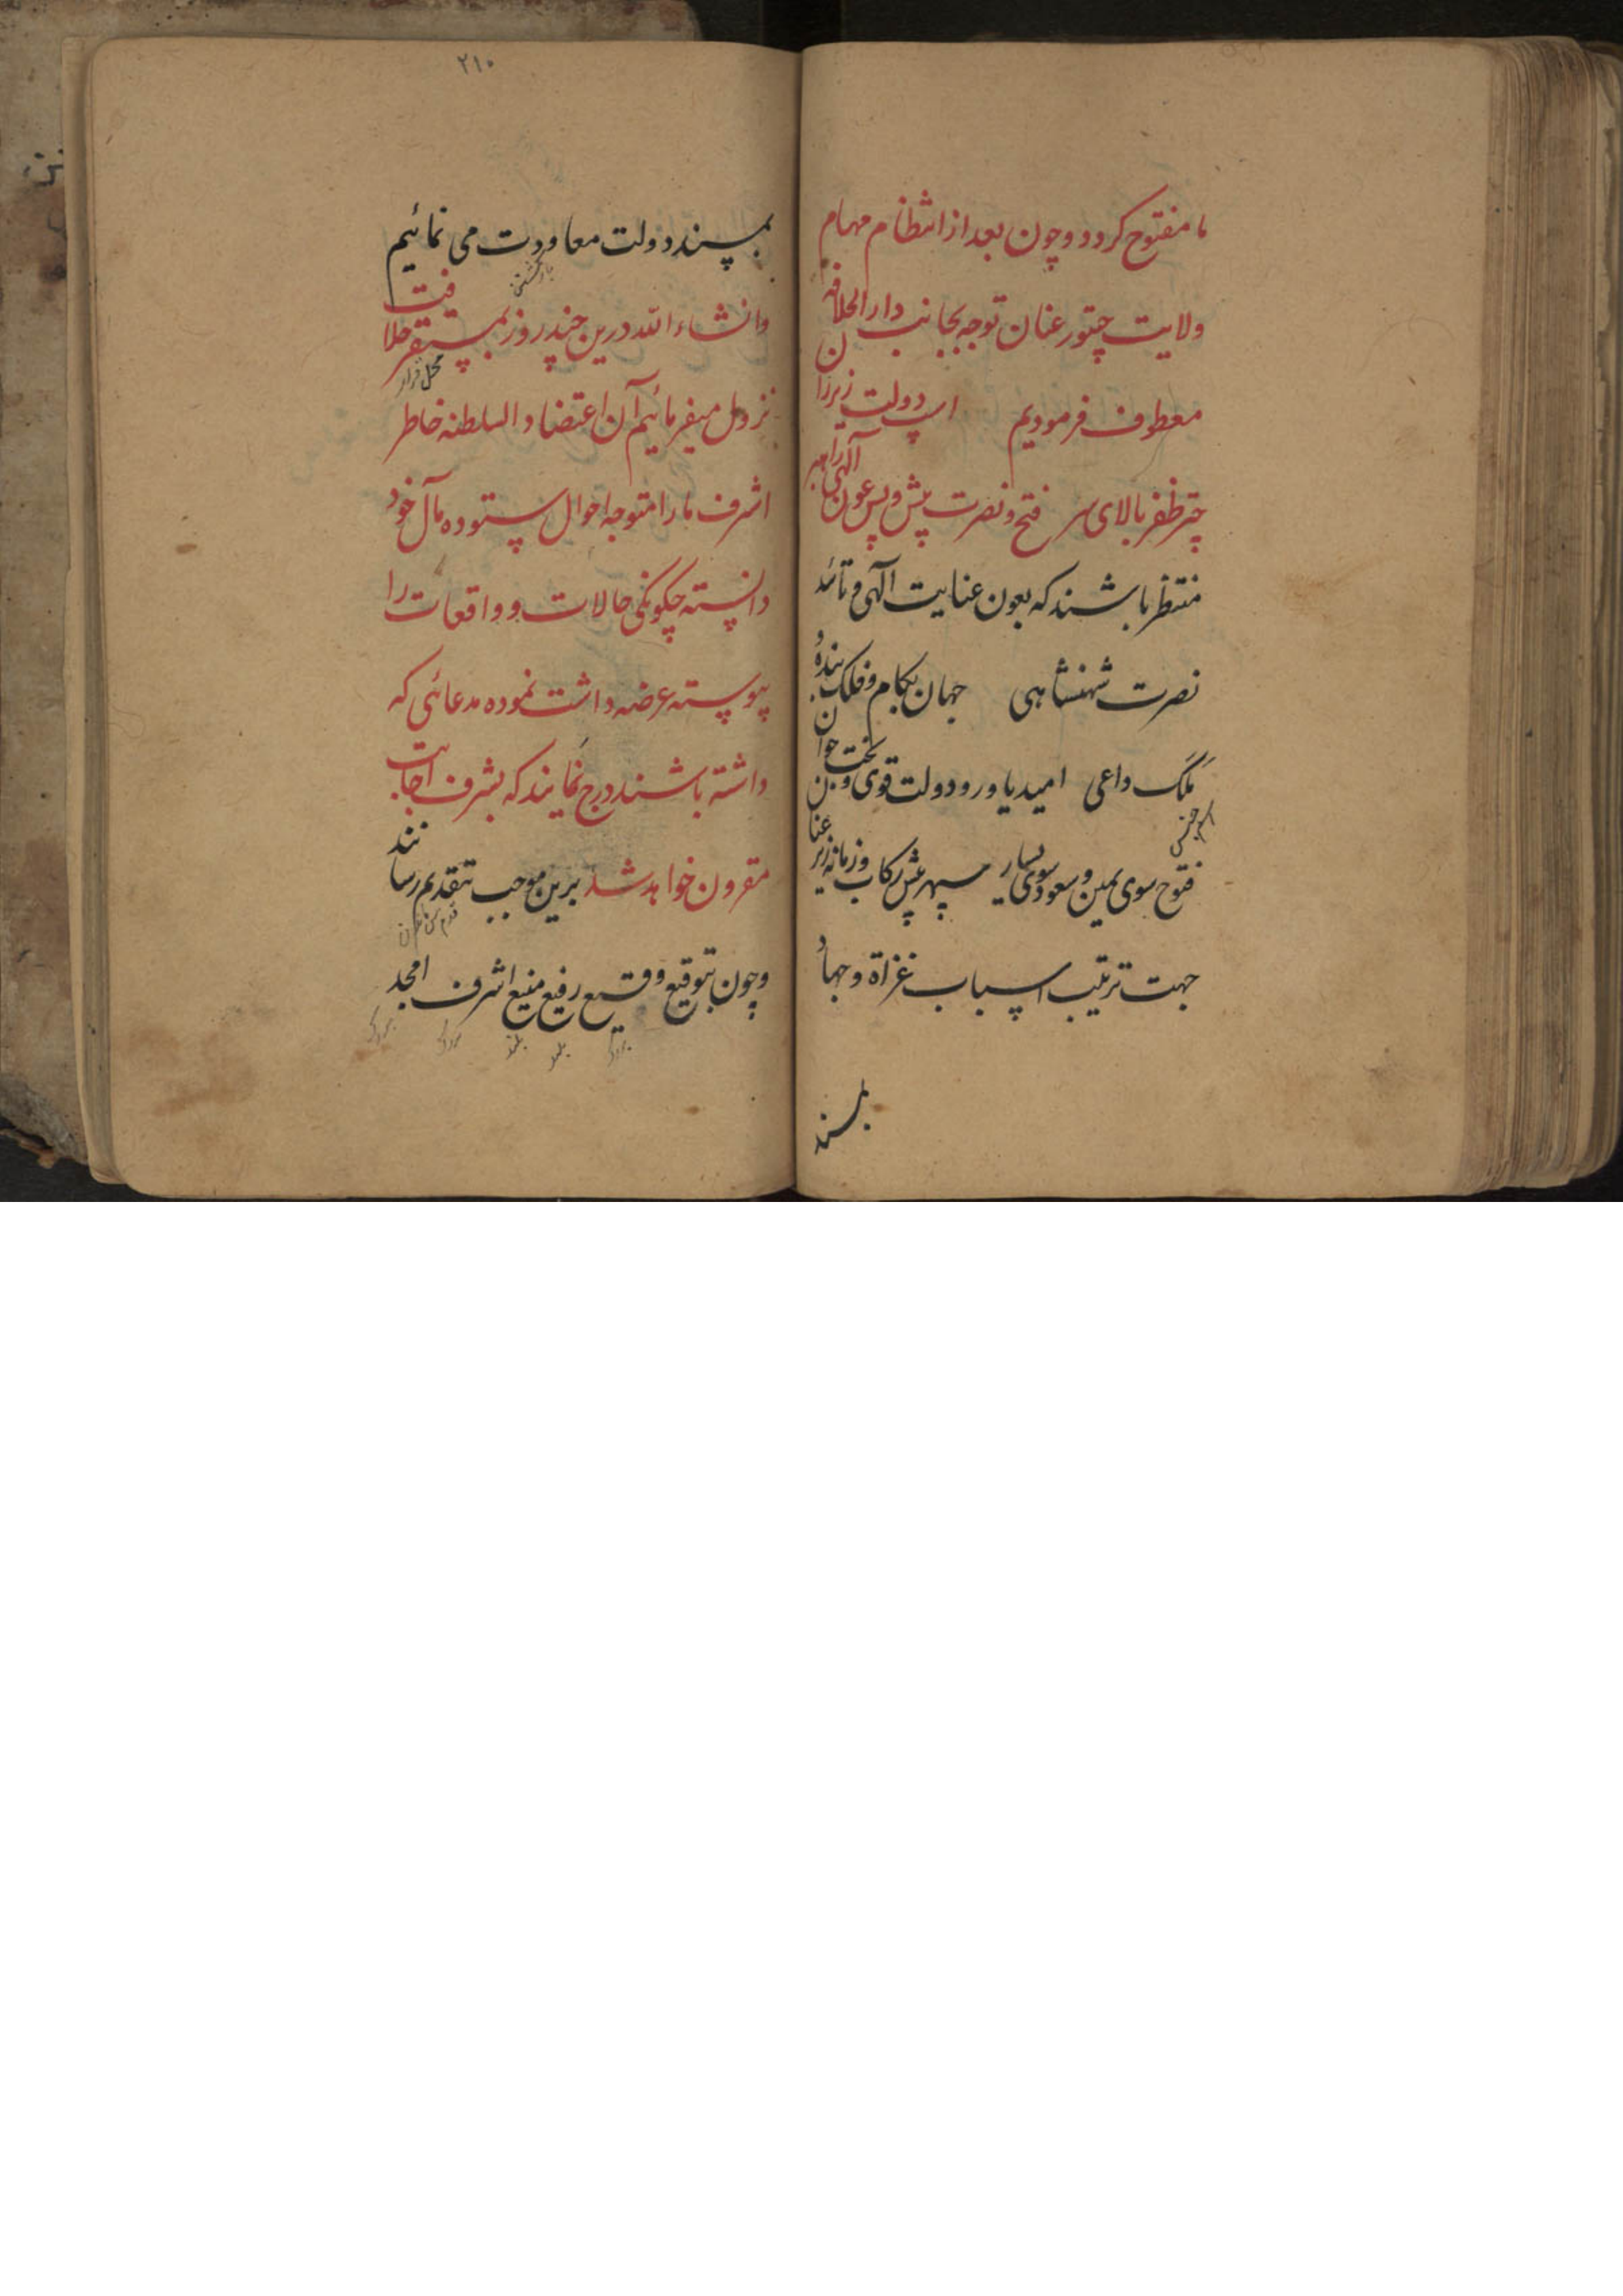 ما مفتوح کردد و چون بعد از انتظام مهام
ولایت چتور عنان توجه بجانب دار الخلافه
معطوف فرمودیم اسپ دولت زیر ران
چتر ظفر بالای سر فتح و نصرت پیش و پس عون آلهی راهبر
منتظر باشند که بعون عنایت آلهی و تائد
نصرت شهنشاهی جهان بکام و فلک بنده
و ملک داعی امید یاور و دولت قوی و بخت جوان
فتوح سوی یمین و سعود سوی یسار سپهر غش رکاب و زمانه زیر عنان
جهت ترتیب اسباب غزاة و جهاد
بمسند
۲۱۰
بمسند دولت معاودت می نمائیم
بازگشتن
وانشاء الله درین چند روز بمستقر خلافت
محل قرار
نزول میفرمائیم آن اعتضاد السلطنه خاطر
اشرف ما را متوجه احوال ستوده مآل خود
دانسته چکونکی حالات و واقعات را
پیوسته عرضه داشت نموده مدعائی که
داشته باشند درج نمایند که بشرف اجابت
مقرون خواهد شد برین موجب بتقدیم رسانند
و چون بتوقیع وقیع رفیع منیع اشرف امجد
بلند
بلند